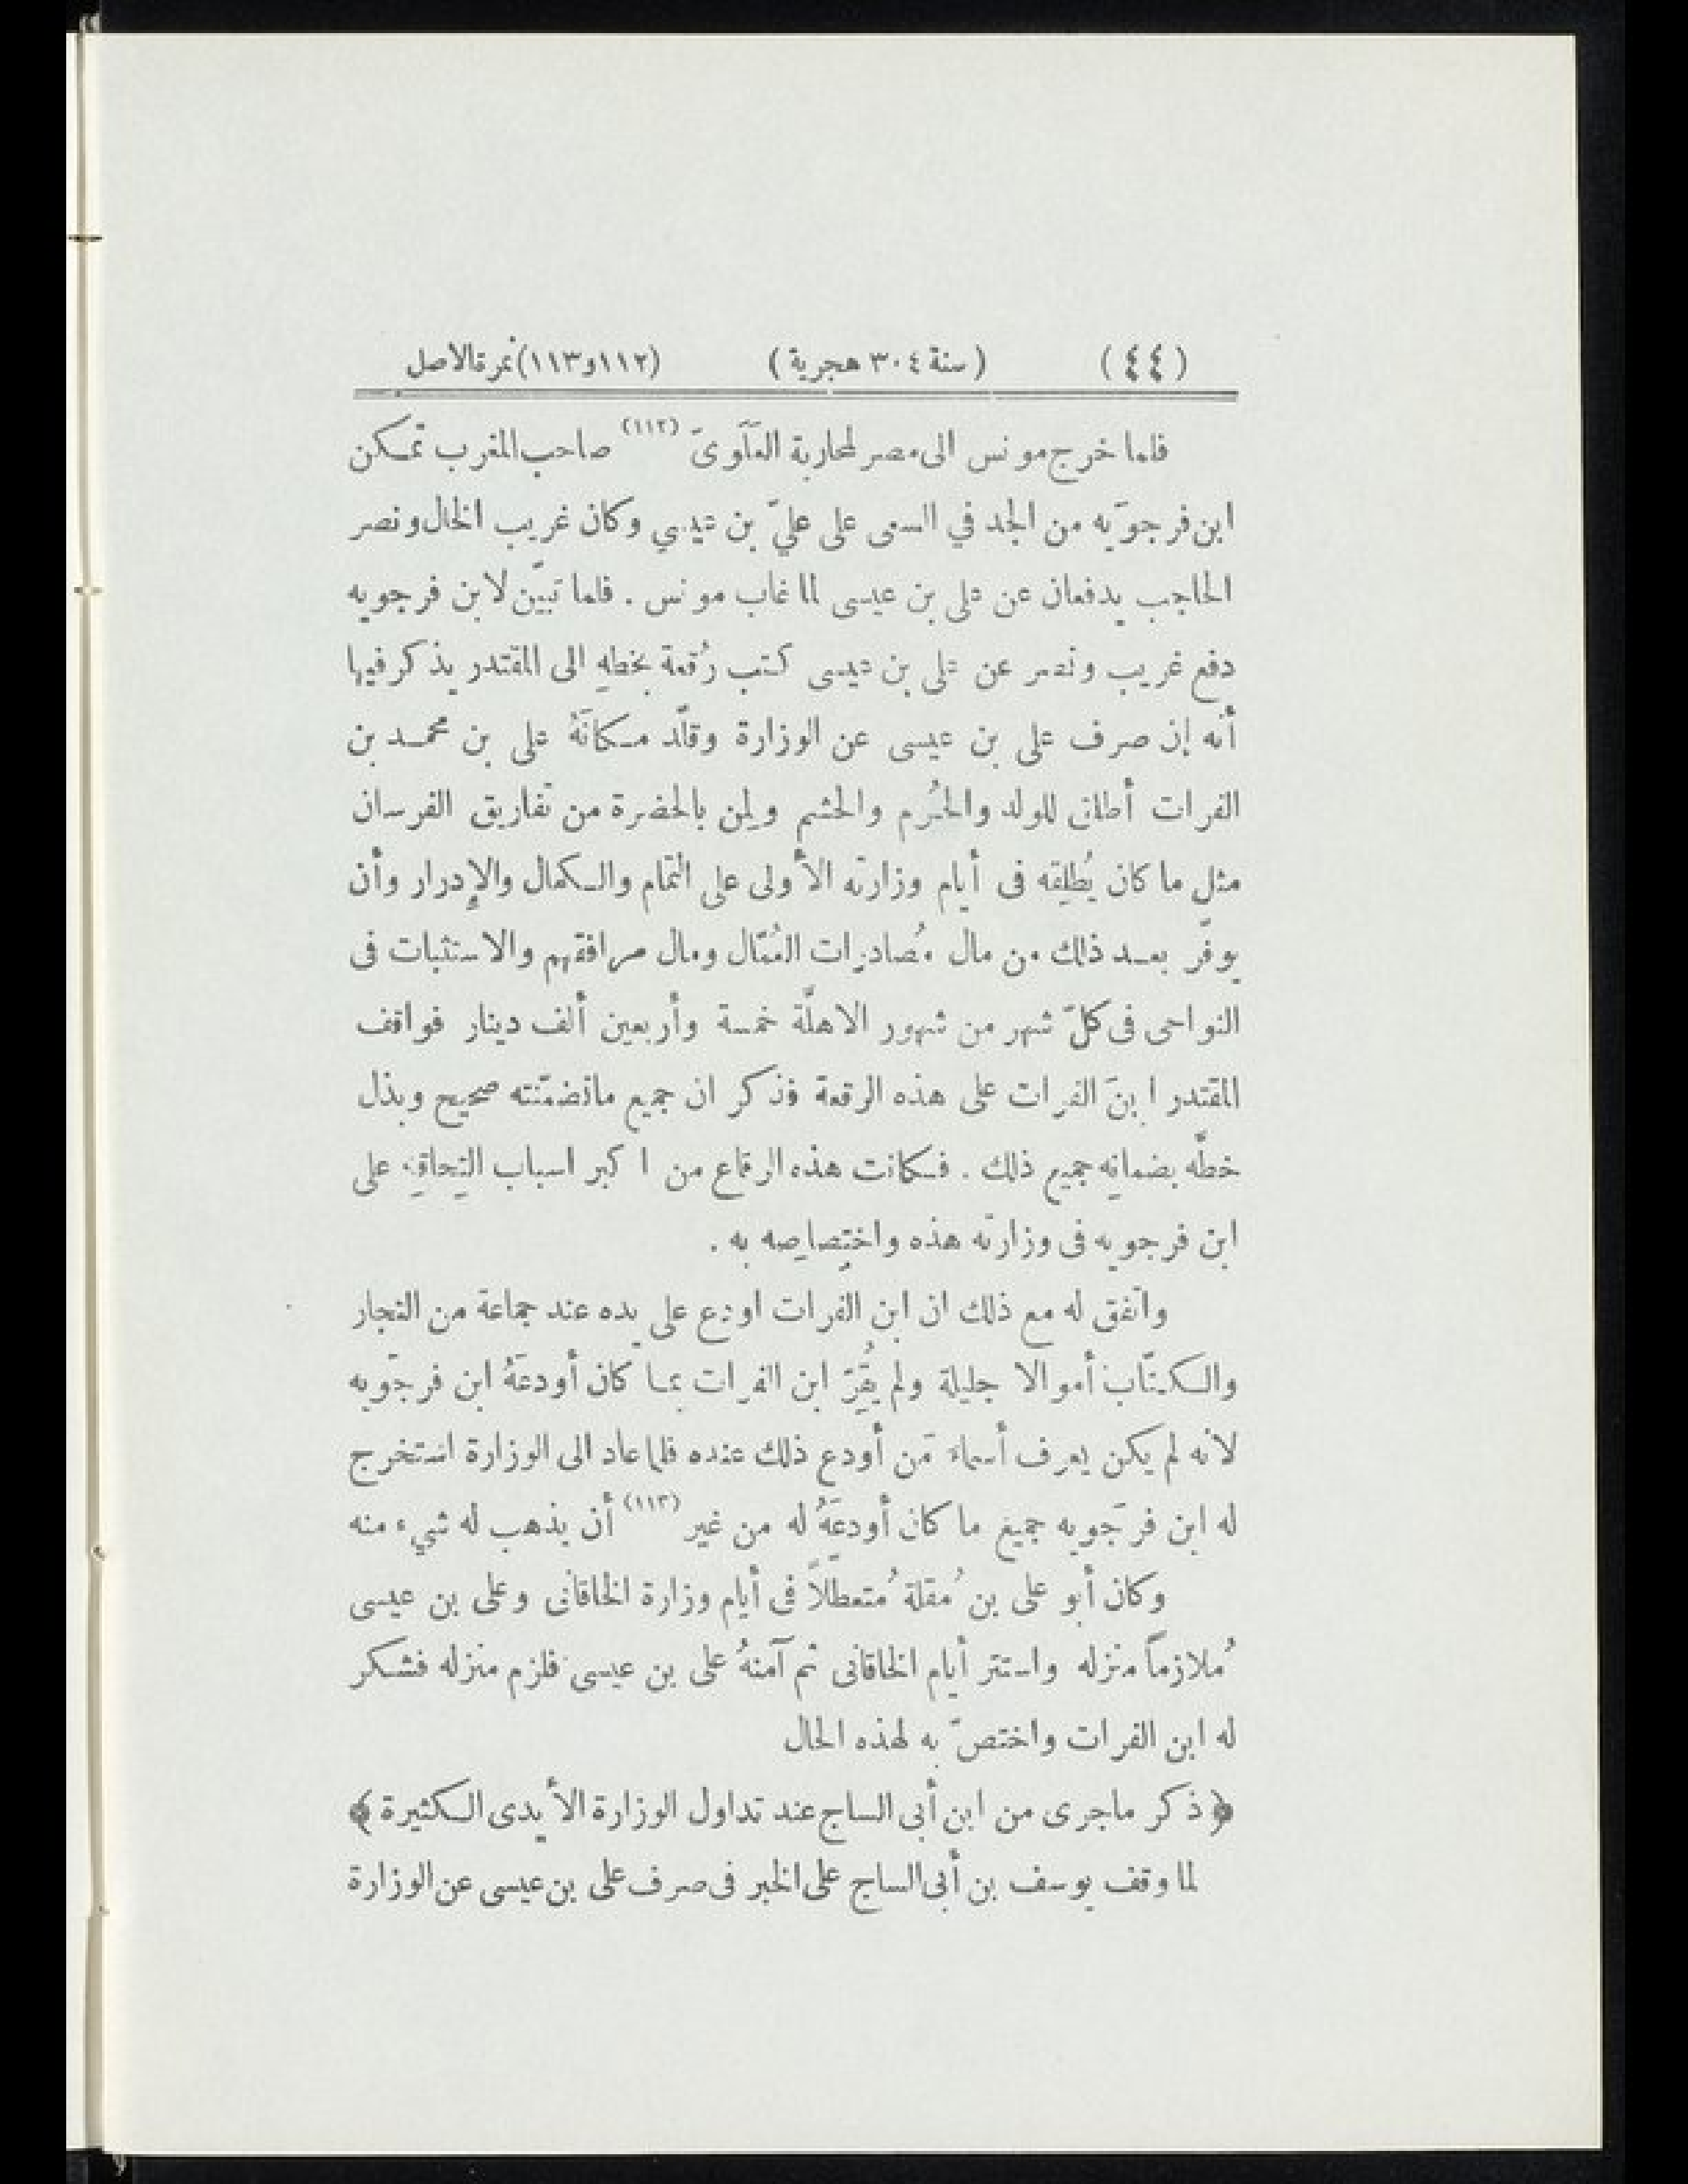 (٤٤) (سنة ٣٠٤ هجرية) (١١٢و١١٣)نمرةالاصل
فلما خرج مونس الى مصر لمحاربة العَلَوىّ (١١٢) صاحب المغرب تمـكن
ابن فرجوّيه من الجد في السعى على عليّ بن عيسي وكان غريب الخال ونصر
الحاجب يدفعان عن على بن عيسى لما غاب مونس . فلما تبيّن لابن فرجويه
دفع غريب ونصر عن على بن عيسى كتب رُقعة بخطهِ الى المقتدر يذكر فيها
أنه إن صرف على بن عيسى عن الوزارة وقلّد مـكانَهُ على بن محمـد بن
الفرات أطلق للولد والحُرم والحشم ولمن بالحضرة من تفاريق الفرسان
مثل ما كان يُطلِقه فى أيام وزارته الأولى على التمام والـكمال والإدرار وأن
يوفّر بعـد ذلك من مال مُصادرات العُمّال ومال مرافقهم والاستثبات فى
النواحى فى كلّ شهر من شهور الاهلّة خمسة وأربعين ألف دينار فواقف
المقتدر ابنَ الفرات على هذه الرقعة فذكر ان جميع ماتضمّنته صحيح وبذل
خطّه بضمانِه جميع ذلك . فـكانت هذه الرقاع من اكبر اسباب التحاقِه على
ابن فرجويه فى وزارته هذه واختِصاصِه به .
واتفق له مع ذلك ان ابن الفرات اودع على يده عند جماعة من التجار
والـكتّاب أموالا جليلة ولم يُقِرّ ابن الفرات بمـا كان أودعَهُ ابن فرجوّيه
لانه لم يكن يعرف أسماءَ مَن أودع ذلك عنده فلما عاد الى الوزارة استخرج
له ابن فرجَويه جميع ما كان أودعَهُ له من غير (١١٣) أن يذهب له شيء منه
وكان أبو على بن مُقلة مُتعطّلاً فى أيام وزارة الخاقانى وعلى بن عيسى
مُلازماً منزله واستتر أيام الخاقانى ثم آمنهُ على بن عيسى فلزم منزله فشـكر
له ابن الفرات واختصّ به لهذه الحال
﴿ذكر ماجرى من ابن أبى الساج عند تداول الوزارة الأيدى الـكثيرة﴾
لما وقف يوسف بن أبى الساج على الخبر فى صرف على بن عيسى عن الوزارة